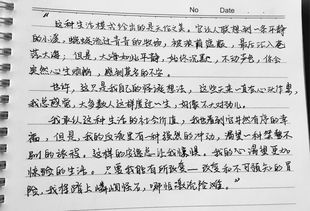 No Date
"这种生活模式给出的是天伦之美。它让人联想到一条平静
的小溪，蜿蜒流过青青的牧场，被浓荫遮蔽，最后汇入苍
茫大海；但是，大海如此平静，始终沉默，不动声色，你会
突然心生烦恼，感到莫名的不安。
也许，这只是我自己的怪诞想法，这些天来一直在心头作祟，
我总感觉，大多数人这样度过一生，好像不大对劲儿。
我承认这种生活的社会价值，我也看到它井然有序的幸
福，但是，我的血液里有一种强烈的冲动，渴望一种桀骜不
驯的旅程。这样的安逸总让我惊惧。我的心渴望更加
惊险的生活。只要我能有所改变——改变和不可预知的冒
险，我将踏上嶙峋怪石，哪怕激流险滩。"